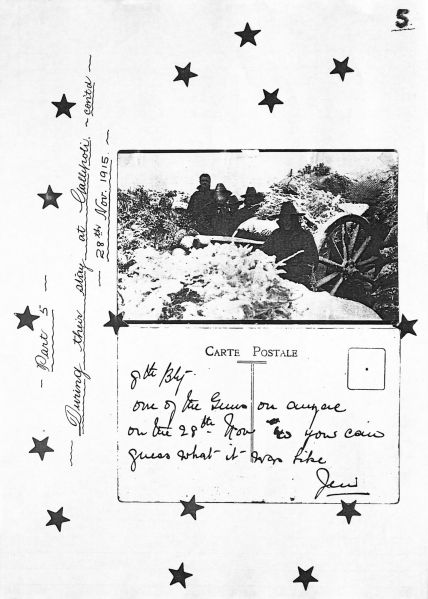 5.
- Part 5 -
~ During their stay at Gallipoli. ~ contd ~
- 28th Nov. 1915. -
CARTE POSTALE
9th Bty
one of the Guns on anzac
on the 28th Nov so you can
guess what it was like